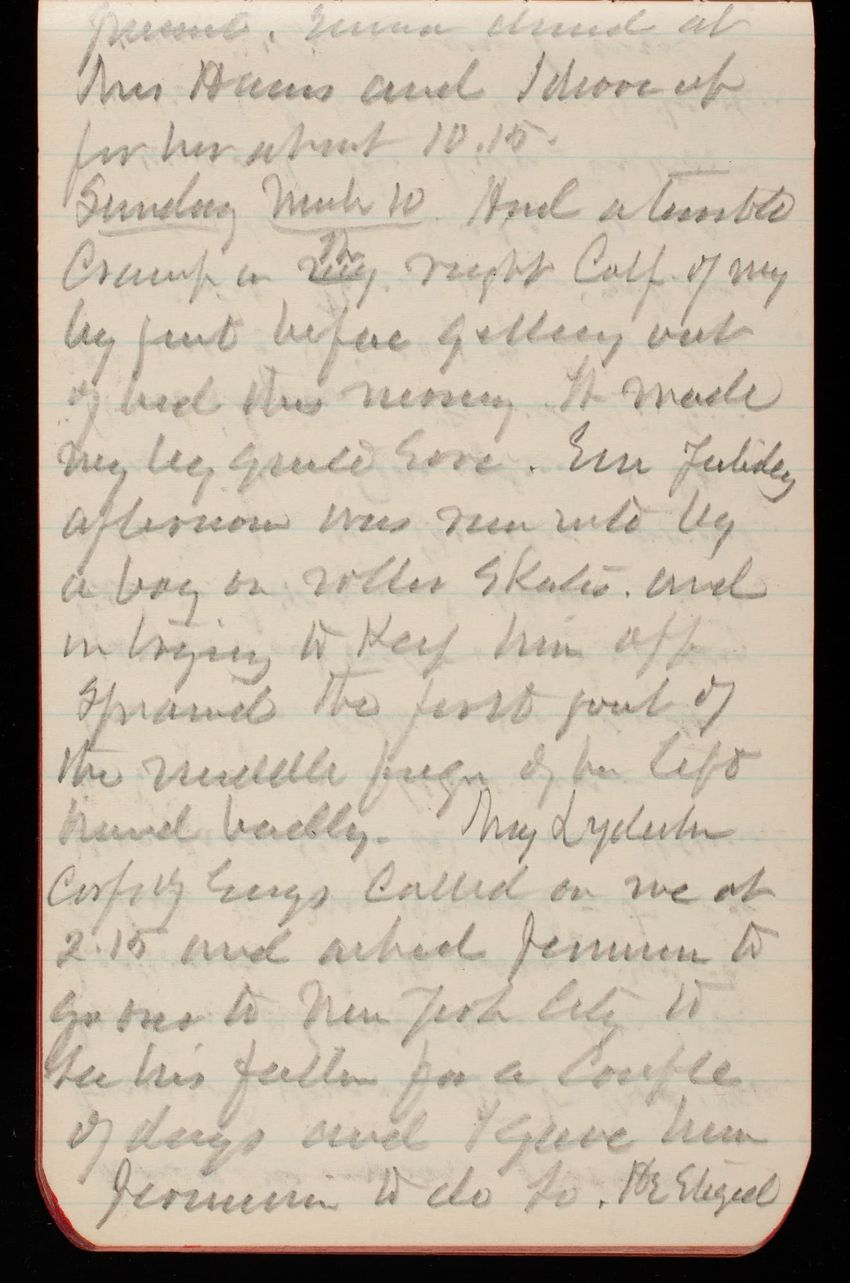 present. Emma dined at
Mrs Hains and I drove up
for her about 10.15.
Sunday March 10. Had a terrible
Cramp in the right Calf of my
leg just before getting out
of bed this morning. It made
my leg quite Sore. Em
afternoon was run into by
a boy on roller Skates. and
in trying to Keep him off
Sprained the first joint of
the middle finger of her left
hand badly. Maj Lydecker
Corps of Engs Called on me at
2.15 and asked permission to
go over to New York City to
See his father for a Couple
of days and I gave him
permission to do so. He Stayed